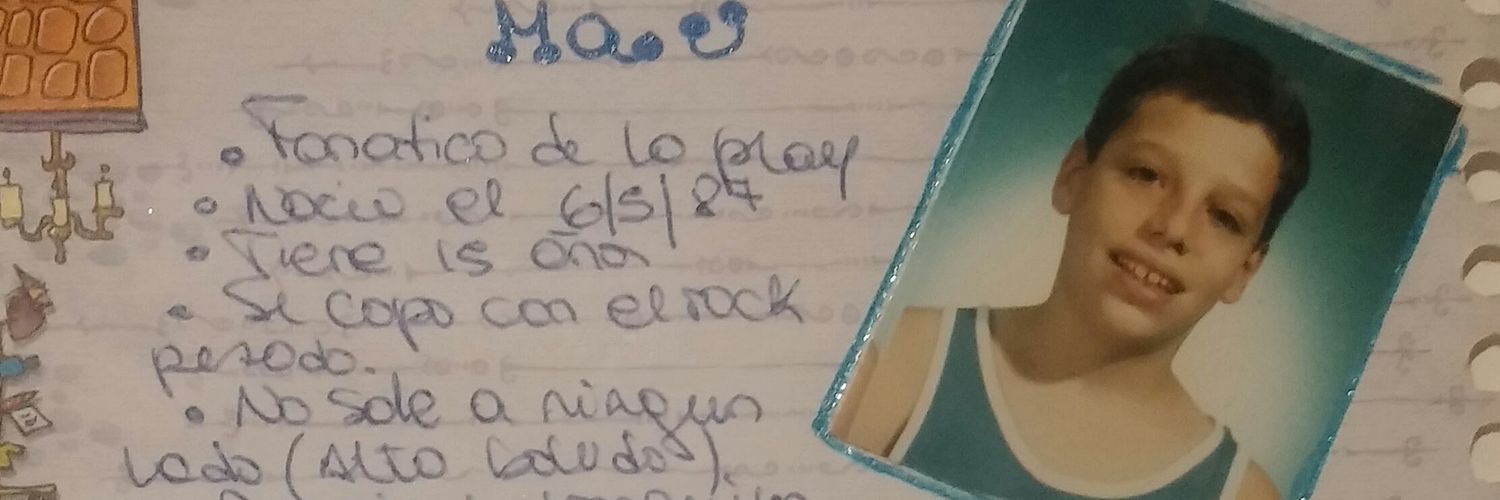 Mau
• Fanatico de la play
• Nacio el 6/5/87
• Tiene 15 años
• Se copo con el rock
pesado.
• No sale a ningun
lado (Alto boludo).